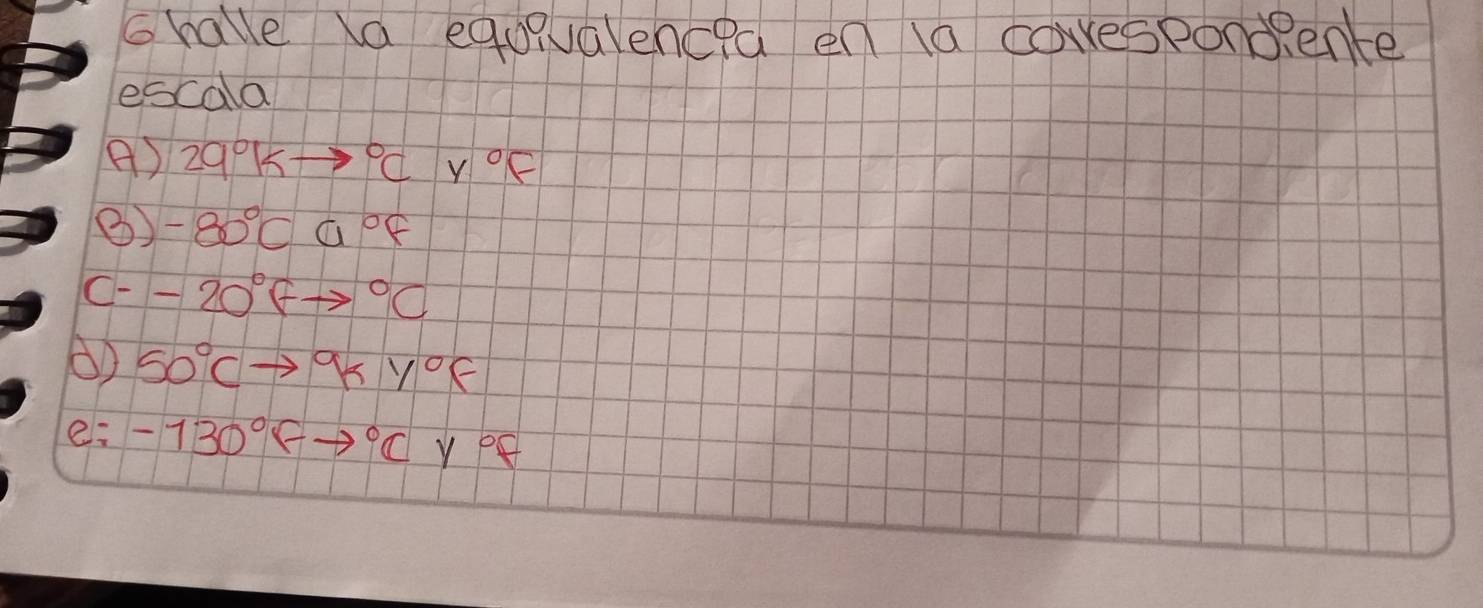 6 halle la equivalencia en la correspondiente
escala
A) 29°K → °C y °F
B) -80°C a °F
C- -20°F → °C
d) 50°C → °K y °F
e: -130°F → °C y °F